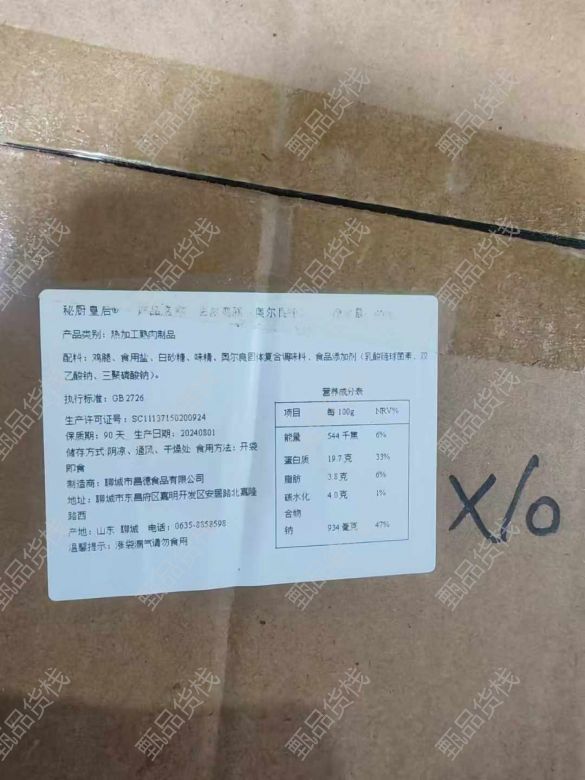 秘厨皇后® 产品名称 奥尔良味 净含量
产品类别：热加工熟肉制品
配料：鸡腿、食用盐、白砂糖、味精、奥尔良固体复合调味料、食品添加剂（乳酸链球菌素、双
乙酸钠、三聚磷酸钠）。
执行标准：GB 2726
生产许可证号：SC11137150200924
保质期：90 天 生产日期：20240801
储存方式 阴凉、通风、干燥处 食用方法：开袋
即食
制造商：聊城市昌德食品有限公司
地址：聊城市东昌府区嘉明开发区安居路北嘉隆
路西
产地：山东 聊城 电话：0635-8858598
温馨提示：涨袋漏气请勿食用
营养成分表
项目 每 100g NRV%
能量 544 千焦 6%
蛋白质 19.7 克 33%
脂肪 3.8 克 6%
碳水化 4.0 克 1%
合物
钠 934 毫克 47%
X/0
甄品货栈